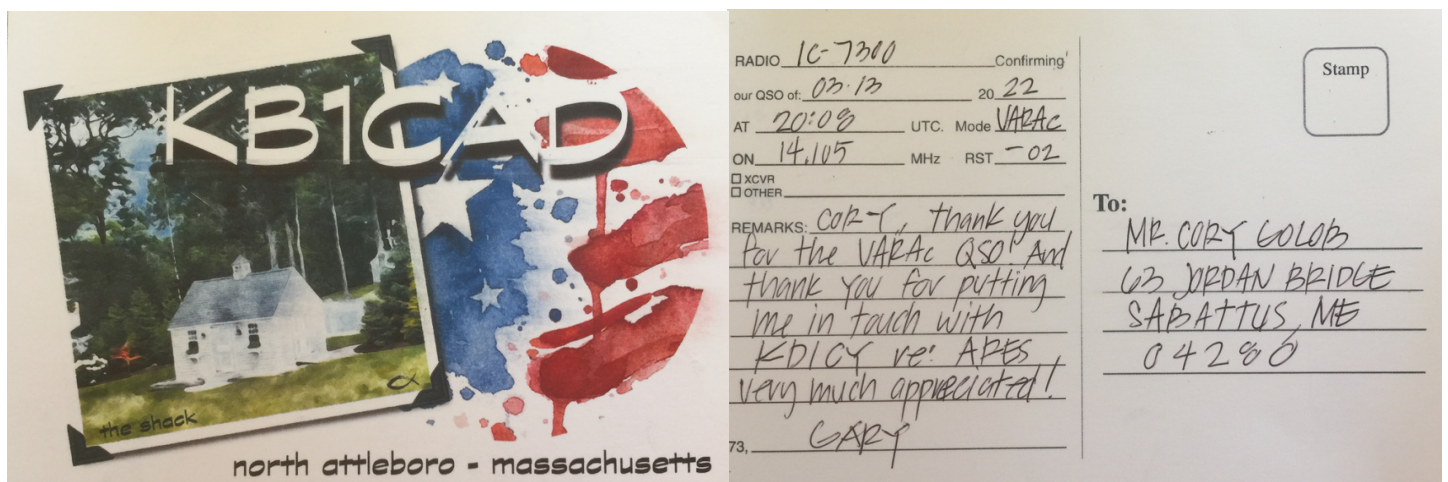 KB1CAD
the shack
north attleboro - massachusetts
RADIO IC-7300 Confirming
our QSO of: 03.13 2022
AT 20:08 UTC. Mode VARAC
ON 14.105 MHz RST -02
XCVR
OTHER
REMARKS: CORY, thank you
for the VARAC QSO! And
thank you for putting
me in touch with
KD1CY re: ARES
very much appreciated!
73, GARY
Stamp
To:
MR. CORY GOLOB
63 JORDAN BRIDGE
SABATTUS, ME
04280